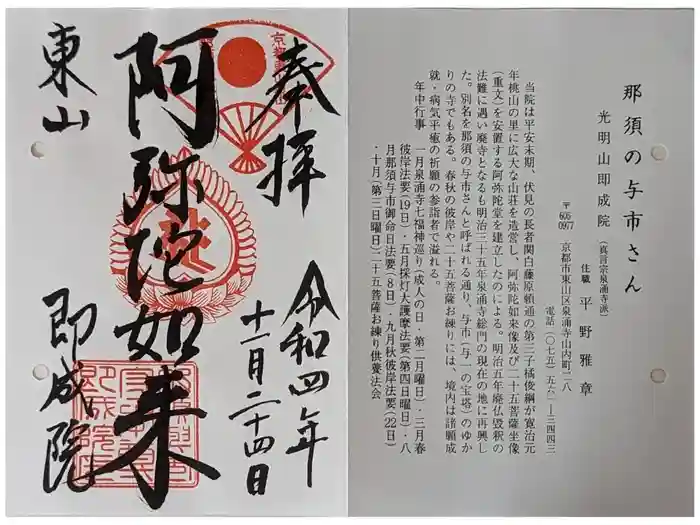 奉拝
令和四年
十一月二十四日
阿弥陀如来
東山
即成院
那須の与市さん
光明山即成院(真言宗泉涌寺派)
住職 平野雅章
〒605-0977 京都市東山区泉涌寺山内町二八
電話(〇七五)五六一ー三四四三
当院は平安末期、伏見の長者関白藤原頼通の第三子橘俊綱が寛治元
年桃山の里に広大な山荘を造営し、阿弥陀如来像及び二十五菩薩坐像
(重文)を安置する阿弥陀堂を建立したのによる。明治五年廃仏毀釈の
法難に遇い廃寺となるも明治三十五年泉涌寺総門の現在の地に再興し
た。別名を那須の与市さんと呼ばれる通り、与市(与一の宝塔)のゆか
りの寺でもある。春秋の彼岸や二十五菩薩お練りには、境内は諸願成
就・病気平癒の祈願の参詣者で溢れる。
年中行事 一月泉涌寺七福神巡り(成人の日・第二月曜日)・三月春
彼岸法要(19日)・五月採灯大護摩法要(第四日曜日)・八
月那須与市御命日法要(8日)・九月秋彼岸法要(22日)
・十月(第三日曜日)二十五菩薩お練り供養法会